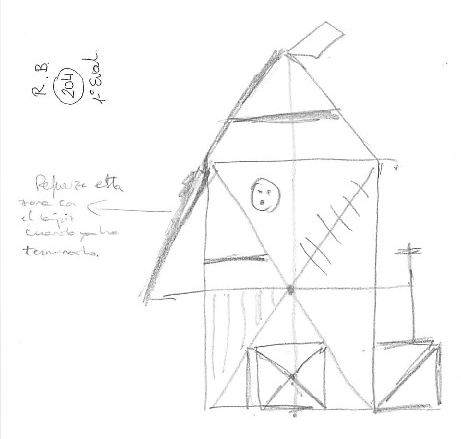 R. B.
204
1ª Eval
Refuerza esta
zona con
el lápiz
cuando ya ha
terminado.